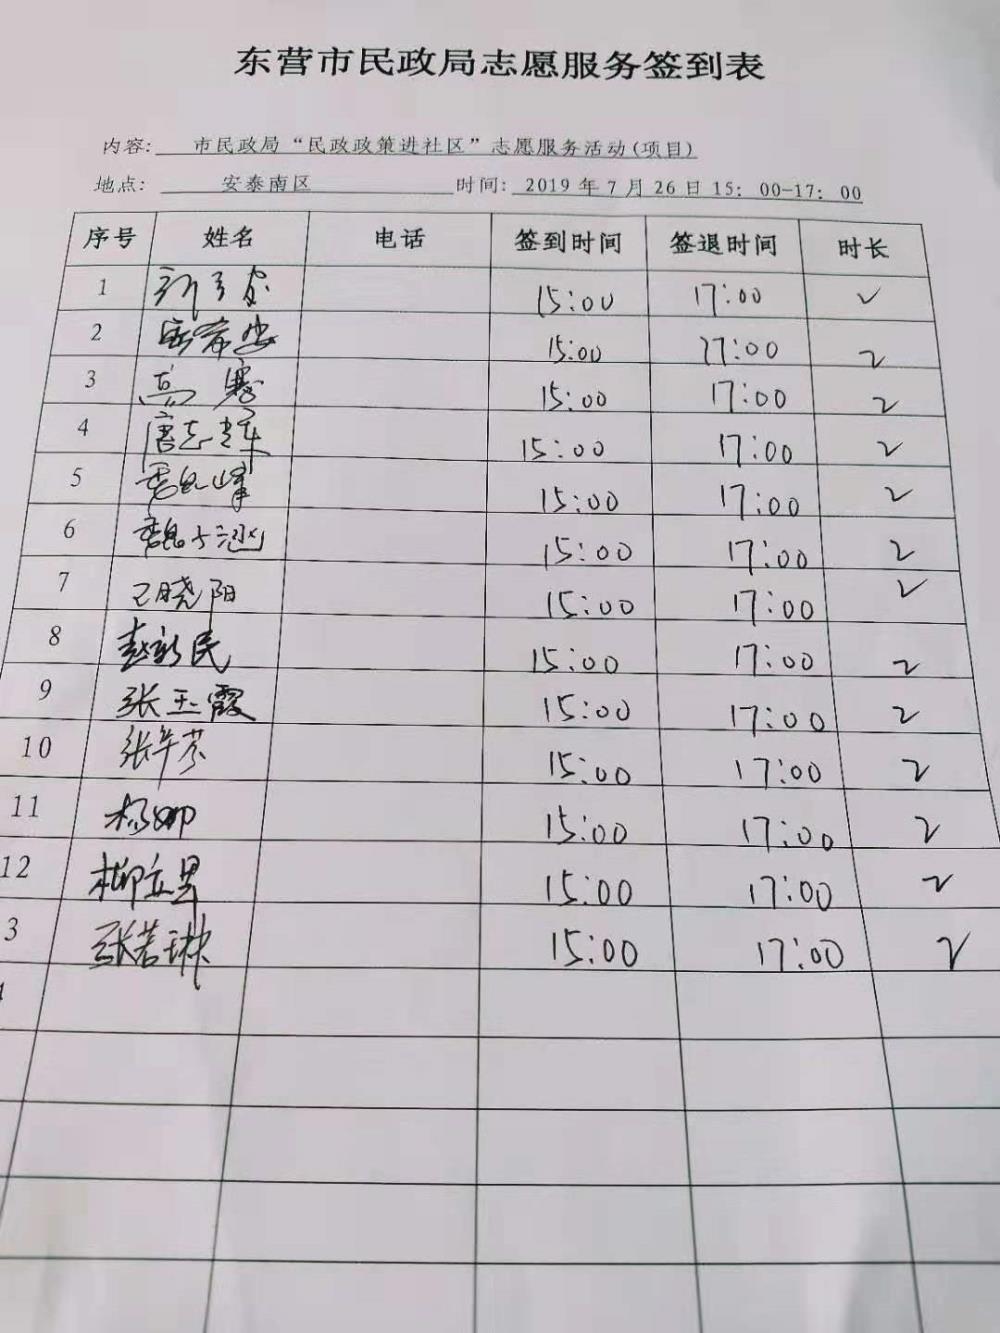 东营市民政局志愿服务签到表
内容: 市民政局“民政政策进社区”志愿服务活动(项目)
地点: 安泰南区 时间: 2019年7月26日15:00-17:00
序号 姓名 电话 签到时间 签退时间 时长
1 15:00 17:00 2
2 15:00 17:00 2
3 高 15:00 17:00 2
4 唐志军 15:00 17:00 2
5 峰 15:00 17:00 2
6 魏 15:00 17:00 2
7 晓阳 15:00 17:00 2
8 赵新民 15:00 17:00 2
9 张玉霞 15:00 17:00 2
10 张 15:00 17:00 2
11 杨娜 15:00 17:00 2
12 柳立昱 15:00 17:00 2
3 张若琳 15:00 17:00 2